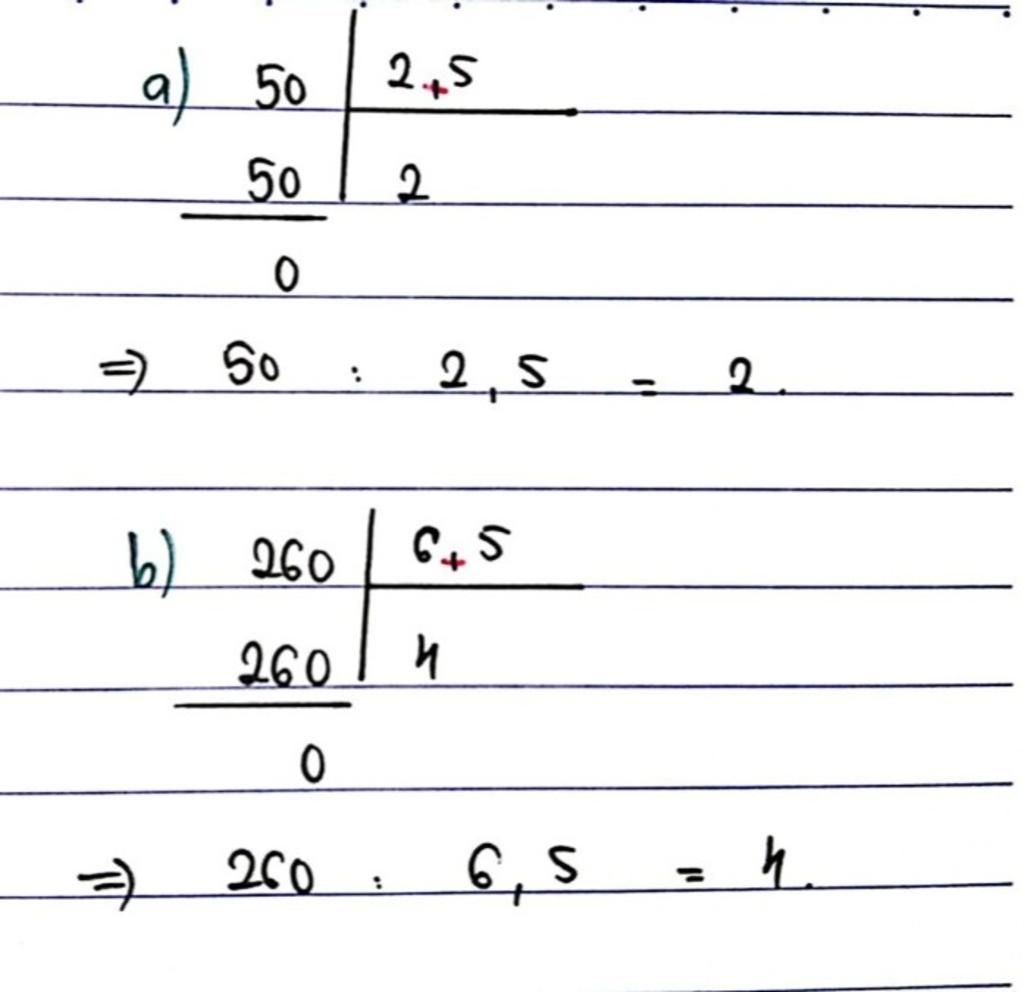 a) 50 | 2,5
50 | 2
0
⇒ 50 : 2,5 = 2.
b) 260 | 6,5
260 | 4
0
⇒ 260 : 6,5 = 4.